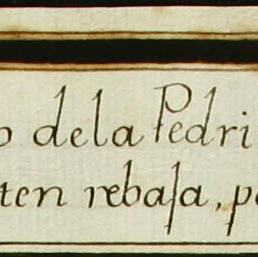 o dela Pedri
ten rebaſa, po